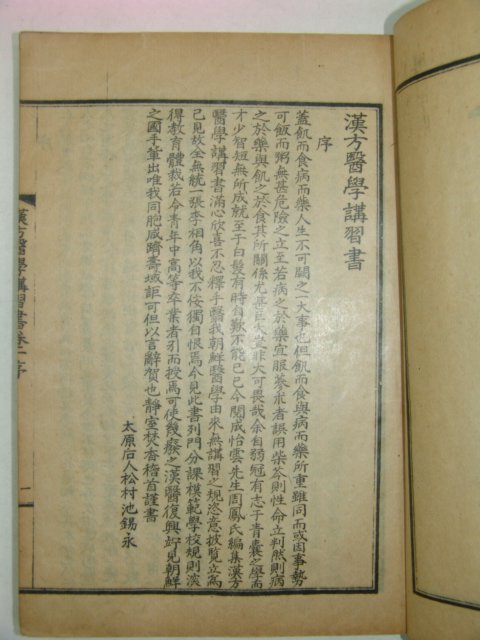 漢方醫學講習書
序
蓋飢而食病而藥人生不可闕之一大事也但飢而食與病而藥所重雖同而或因事勢
可飯而粥無甚危險之立至若病之於藥宜服蔘朮者誤用柴芩則性命立判然則病
之於藥與飢之於食其所關係尤甚巨大豈非大可畏哉余自弱冠有志于青囊之學而
才少智短無所成就至于白髮有時自歎不能已已今閱成怡雲先生周鳳氏編集漢方
醫學講習書滿心欣喜不忍釋手我朝鮮醫學由來無講習之規恣意披覧立爲
己見故全無統一張李相角以我不佞獨自恨焉今見此書列門分課模範學校規則深
得教育體裁若令青年中高等卒業者引而授焉可使幾癈之漢醫復興好見朝鮮
之國手輩出唯我同胞咸躋壽域詎可但以言辭賀也靜室焚香稽首謹書
太原后人松村池錫永
漢方醫學講習書卷一 序
一